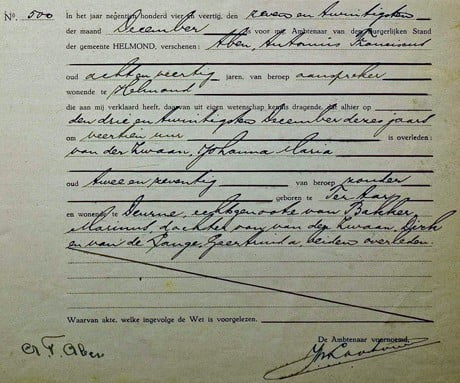 No. 500 In het jaar negentien honderd vier en veertig, den zeven en twintigsten
der maand December is voor mij Ambtenaar van den Burgerlijken Stand
der gemeente HELMOND, verschenen: Aben, Antonius Franciscus
oud acht en veertig jaren, van beroep aanspreker
wonende te Helmond
die aan mij verklaard heeft, daarvan uit eigen wetenschap kennis dragende, dat alhier op
den drie en twintigsten December dezes jaars
om veertien uur is overleden:
van der Zwaan, Johanna Maria
oud twee en zeventig van beroep zonder
geboren te Ter Aar
en wonende te Deurne, echtgenoote van Bakker,
Marinus, dochter van van der Zwaan, Dirk
en van de Lange, Geertruida, beiden overleden.
Waarvan akte, welke ingevolge de Wet is voorgelezen.
De Ambtenaar voornoemd,
A F Aben